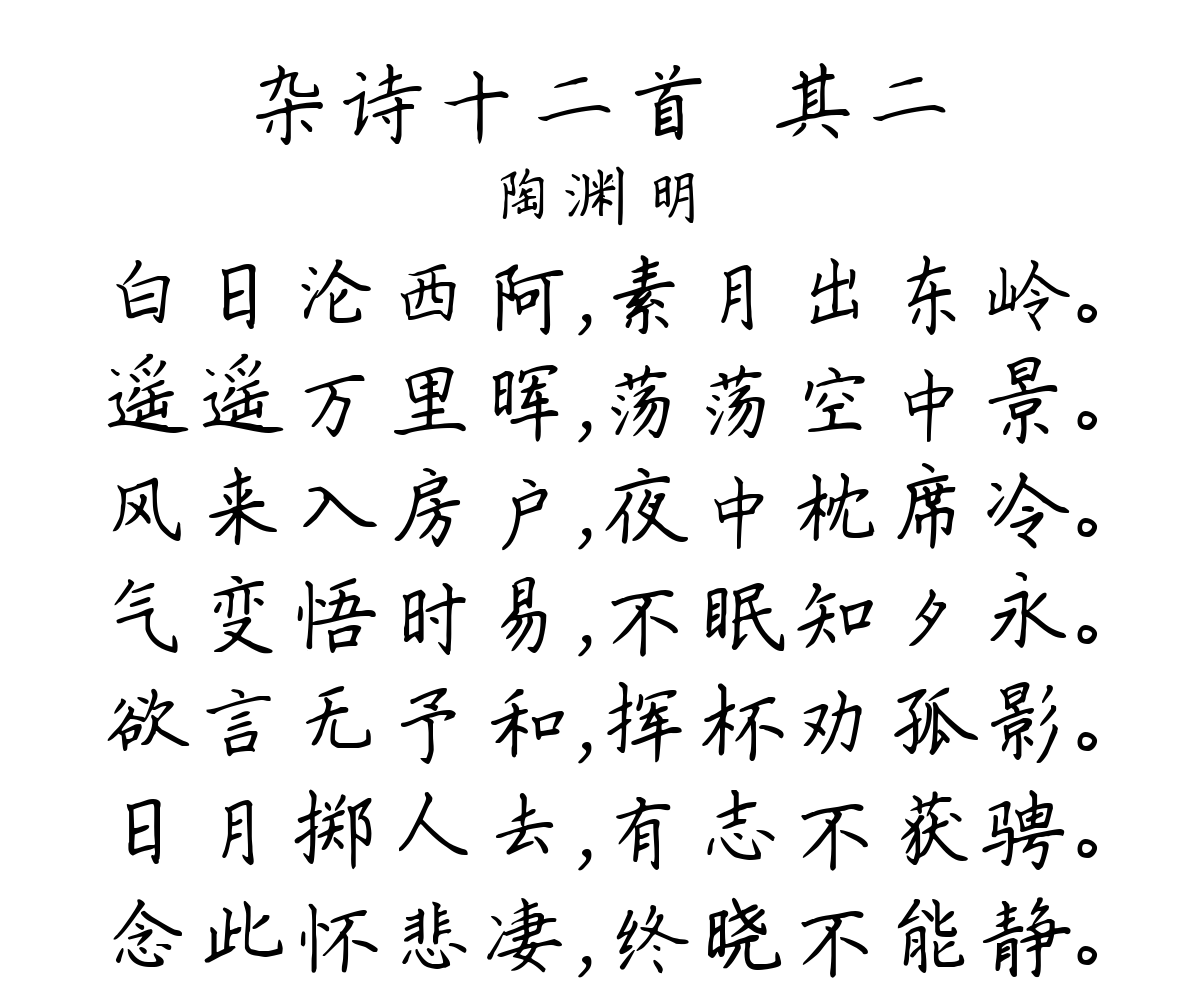 杂诗十二首 其二
陶渊明
白日沦西阿,素月出东岭。
遥遥万里晖,荡荡空中景。
风来入房户,夜中枕席冷。
气变悟时易,不眠知夕永。
欲言无予和,挥杯劝孤影。
日月掷人去,有志不获骋。
念此怀悲凄,终晓不能静。